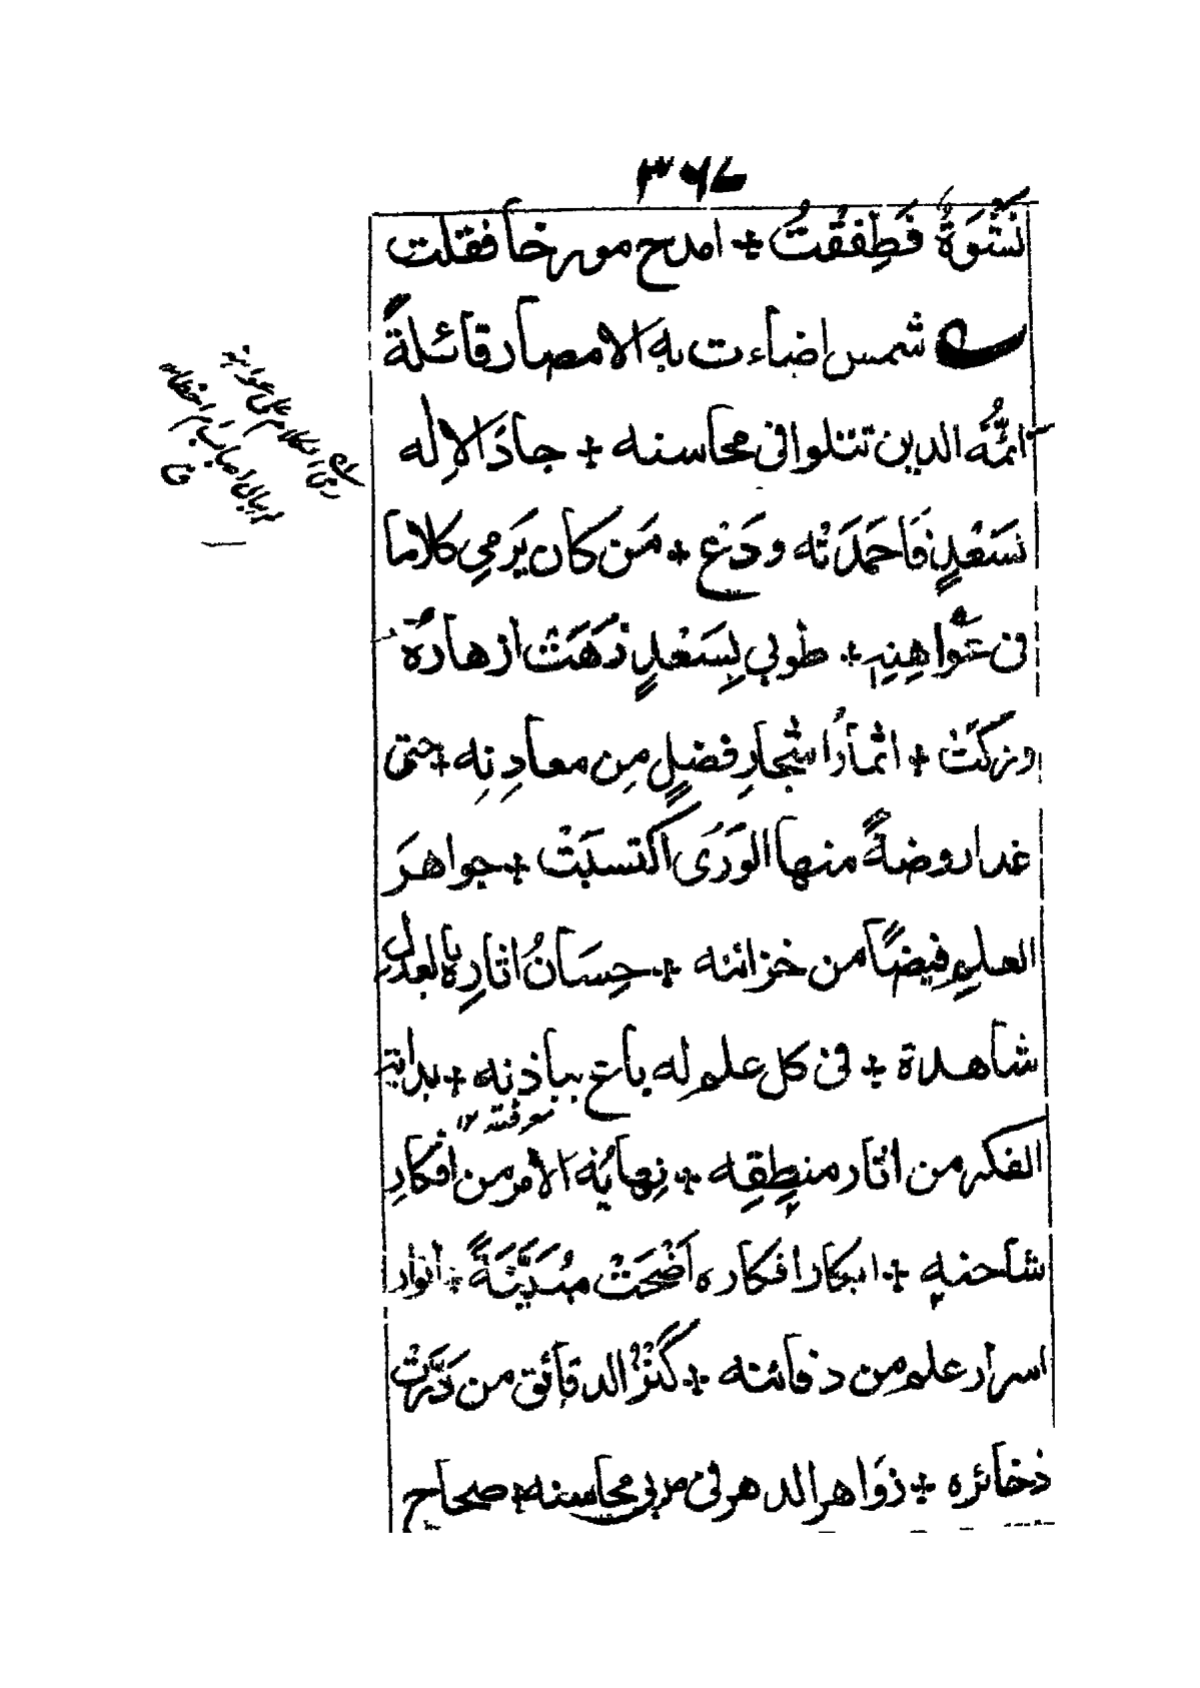 ٣٦٧
نَشْوَةٌ فَطَفِقْتُ + امدح مورخا فقلت
شمس اضاءت به الامصار قائلةً
ائمّةُ الدين تتلوا فى محاسنه + جادَ الاِله
بسَعْدٍ فَاحمَدَنْه ودَعْ + مَن كان يَرمِي كلاما
فى عَواهِنِهِ + طوبي لِسَعْدٍ زَهَتْ ازهارُه
وزكَتْ + اثمارُ اشجارِ فضلٍ مِن معادِنِه + حتى
غدا روضةً منها الوَرَى اكتسبَتْ + جواهرَ
العلمِ فيضًا من خزائنه + حِسَانُ اثارِه بالعدل
شاهدة + فى كل علم له باعٌ بباذنه + بداية
الفكر من اثار منطِقِه + نِهايةُ الامر من افكارِ
معرفته ١٢
شاحنه + ابكار افكاره اَضْحَتْ مُبَيَّنَةً + انوار
اسرار علم من دفائنه + كَنزُ الدقائق من دُرَرٍ
ذخائره + زَواهر الدهر فى مربى محاسنه + صحاح
رمى الكلام على عواهنه
لم يبال اصاب ام اخطاء
ق